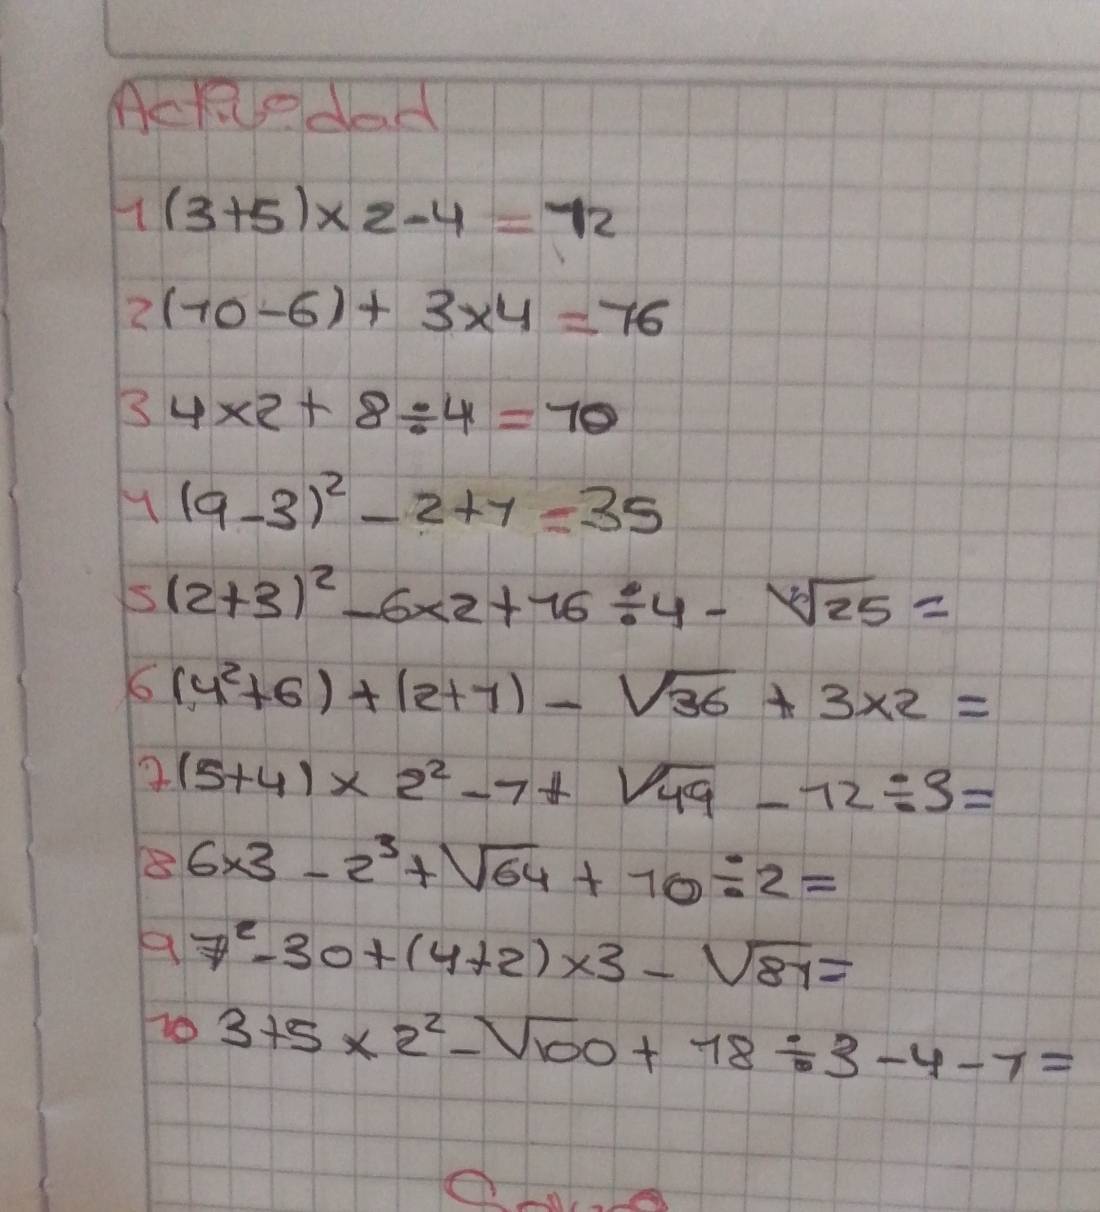 Actividad
1 (3+5)×2-4 = 12
2 (10-6)+ 3×4 = 16
3 4×2+ 8÷4 = 10
4 (9-3)² - 2+1 = 35
5 (2+3)² -6×2+16÷4- √25 =
6 (4²+6)+(2+1)- √36 + 3×2 =
7 (5+4)× 2² -7+ √49 -12÷3=
8 6×3 -2³+√64 + 10÷2=
9 7²-30+(4+2)×3- √81=
10 3+5×2²-√100+ 18÷3-4-1=